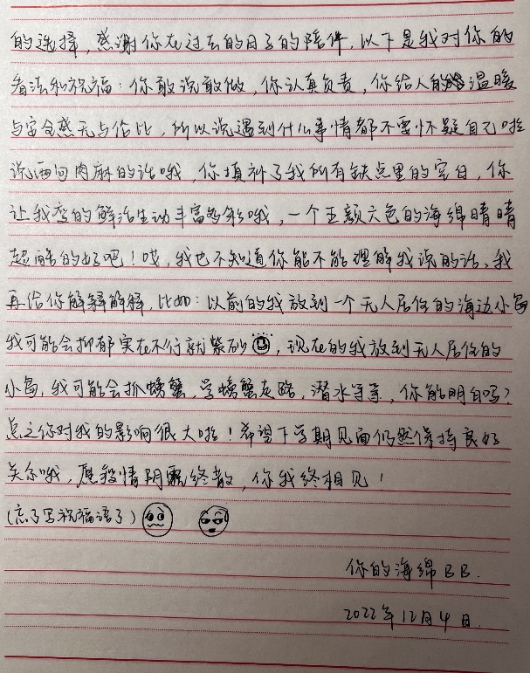 的选择，感谢你在过去的日子的陪伴，以下是我对你的
看法和祝福：你敢说敢做，你认真负责，你给人的温暖
与安全感无与伦比，所以说遇到什么事情都不要怀疑自己啦
说两句肉麻的话哦，你填补了我所有缺点里的空白，你
让我变的鲜活生动丰富多彩哦，一个五颜六色的海绵晴晴
超酷的好吧！哎，我也不知道你能不能理解我说的话，我
再给你解释解释，比如：以前的我放到一个无人居住的海边小岛
我可能会抑郁实在不行就紫砂，现在的我放到无人居住的
小岛，我可能会抓螃蟹，学螃蟹走路，潜水等等，你能明白吗？
总之你对我的影响很大啦！希望下学期见面仍然保持良好
关系哦，愿疫情阴霾终散，你我终相见！
（忘了写祝福语了）
你的海绵BB.
2022年12月4日.